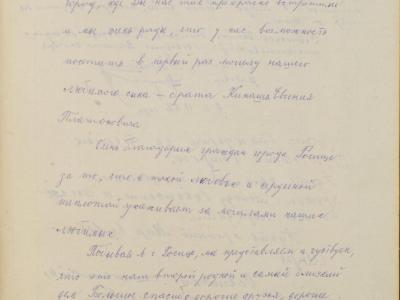 город, где вы нас так прекрасно встретили
и мы очень рады, что у нас возможность
посетить в первый раз могилу нашего
любимого сына – брата Евгения
Платоновича
благодарны граждан города
за то, что с такой любовью и сердечной
теплотой ухаживают за могилами наших
любимых.
Побывав в г. мы представляем и чувствуем,
что это наш второй родной и самый близкий
дом. спасибо дорогие друзья, дорогие